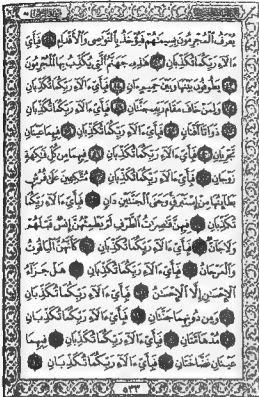 يُعْرَفُ الْمُجْرِمُونَ بِسِيمَاهُمْ فَيُؤْخَذُ بِالنَّوَاصِي وَالْأَقْدَامِ ۝ فَبِأَيِّ
ءَالَاءِ رَبِّكُمَا تُكَذِّبَانِ ۝ هَذِهِ جَهَنَّمُ الَّتِي يُكَذِّبُ بِهَا الْمُجْرِمُونَ
۝ يَطُوفُونَ بَيْنَهَا وَبَيْنَ حَمِيمٍ ءَانٍ ۝ فَبِأَيِّ ءَالَاءِ رَبِّكُمَا تُكَذِّبَانِ
۝ وَلِمَنْ خَافَ مَقَامَ رَبِّهِ جَنَّتَانِ ۝ فَبِأَيِّ ءَالَاءِ رَبِّكُمَا تُكَذِّبَانِ
۝ ذَوَاتَا أَفْنَانٍ ۝ فَبِأَيِّ ءَالَاءِ رَبِّكُمَا تُكَذِّبَانِ ۝ فِيهِمَا عَيْنَانِ
تَجْرِيَانِ ۝ فَبِأَيِّ ءَالَاءِ رَبِّكُمَا تُكَذِّبَانِ ۝ فِيهِمَا مِنْ كُلِّ فَاكِهَةٍ
زَوْجَانِ ۝ فَبِأَيِّ ءَالَاءِ رَبِّكُمَا تُكَذِّبَانِ ۝ مُتَّكِئِينَ عَلَى فُرُشٍ
بَطَائِنُهَا مِنْ إِسْتَبْرَقٍ وَجَنَى الْجَنَّتَيْنِ دَانٍ ۝ فَبِأَيِّ ءَالَاءِ رَبِّكُمَا
تُكَذِّبَانِ ۝ فِيهِنَّ قَاصِرَاتُ الطَّرْفِ لَمْ يَطْمِثْهُنَّ إِنْسٌ قَبْلَهُمْ
وَلَا جَانٌّ ۝ فَبِأَيِّ ءَالَاءِ رَبِّكُمَا تُكَذِّبَانِ ۝ كَأَنَّهُنَّ الْيَاقُوتُ
وَالْمَرْجَانُ ۝ فَبِأَيِّ ءَالَاءِ رَبِّكُمَا تُكَذِّبَانِ ۝ هَلْ جَزَاءُ
الْإِحْسَانِ إِلَّا الْإِحْسَانُ ۝ فَبِأَيِّ ءَالَاءِ رَبِّكُمَا تُكَذِّبَانِ
۝ وَمِنْ دُونِهِمَا جَنَّتَانِ ۝ فَبِأَيِّ ءَالَاءِ رَبِّكُمَا تُكَذِّبَانِ
۝ مُدْهَامَّتَانِ ۝ فَبِأَيِّ ءَالَاءِ رَبِّكُمَا تُكَذِّبَانِ ۝ فِيهِمَا
عَيْنَانِ نَضَّاخَتَانِ ۝ فَبِأَيِّ ءَالَاءِ رَبِّكُمَا تُكَذِّبَانِ ۝
٥٣٣